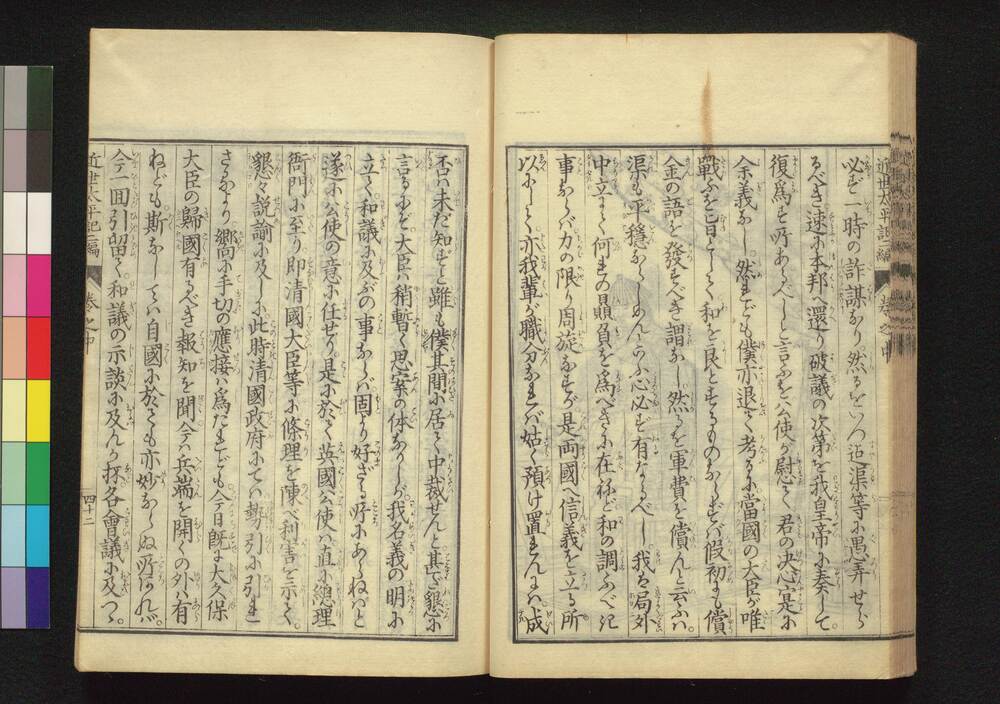 近世太平記二編 卷之中
必ず一時の詐謀なり然るをいつ迄渠等に愚弄せらる
るべき速に本邦へ還り破議の次第を我皇帝に奏して。
復為す所あるべしと言ふを公使が慰て君の决心寔に
余義なし。然れども僕亦退て考るに當國の大臣が唯
戰ふを旨として和を良とするものあらずバ假初にも償
金の語を發すべき謂なし然るを軍費を償んと云ふハ。
渠も平穩ならしめんの心必ず有なるべし我は局外
中立にて何れの贔負を為べきに在ねど和の調ふべき
事ならバ力の限り周旋なすが是両國へ信義を立る所
以にして亦我輩が職分なれバ姑く預け置れんにハ成
否ハ未だ知ずと雖も僕其間に居て中裁せんと甚で懇に
言るにぞ大臣ハ稍暫く思案の体なりしが我名義の明に
立て和議に及ぶの事ならバ固より好ざる所にあらねバと
遂に公使の意に任せり是に於て英國公使ハ直に總理
衙門に至り即清國大臣等に條理を陳べ利害を示して。
懇々説諭に及しに此時清國政府にてハ勢引に引れ
さるより嚮に手切の應接ハ為たれども今日既に大久保
大臣の歸國有るべき報知を聞今ハ兵端を開くの外ハ有
ねども斯なしてハ自國に於ても亦妙ならぬ所あれバ。
今一回引留て和議の示談に及んか抔各會議に及びつゝ。
近世太平記二編 卷之中 四十二